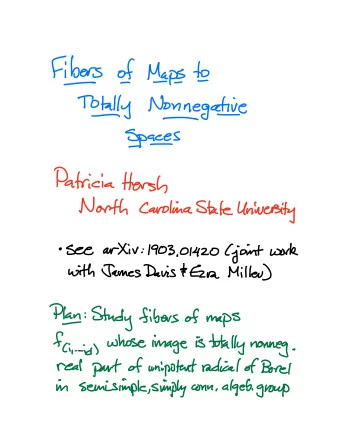 Fibers of Maps to
Totally Nonnegative
Spaces
Patricia Hersh
North Carolina State University
• see arXiv:1903.01420 (joint work
with James Davis & Ezra Miller)
Plan: Study fibers of maps
f(i₁,...,i_d) whose image is totally nonneg.
real part of unipotent radical of Borel
in semisimple, simply conn. algeb. group